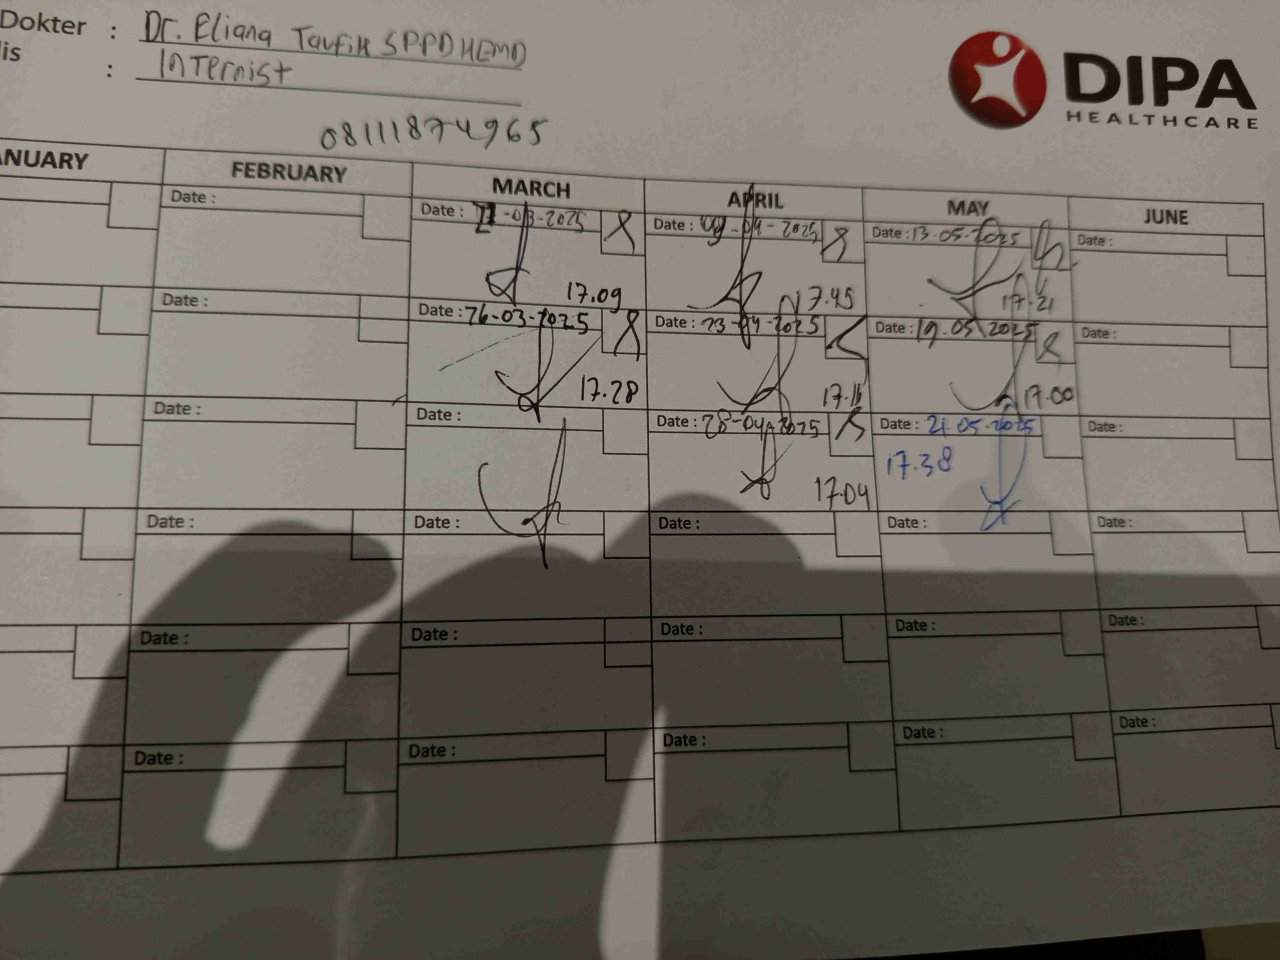 Dokter : Dr. Eliana Taufik SPPD HEMO
lis : Internist
08111874965
DIPA
HEALTHCARE
ANUARY FEBRUARY MARCH APRIL MAY JUNE
Date : Date : -03-2025 Date : -04-2025 Date : 13.05.2025 Date :
17.09 17.45 17.21
Date : Date : 26-03-2025 Date : 23-04-2025 Date : 19.05.2025 Date :
17.28 17.16 17.00
Date : Date : Date : 28-04-2025 Date : 21.05.2025 Date :
17.04 17.38
Date : Date : Date : Date : Date :
Date : Date : Date : Date : Date :
Date : Date : Date : Date : Date :